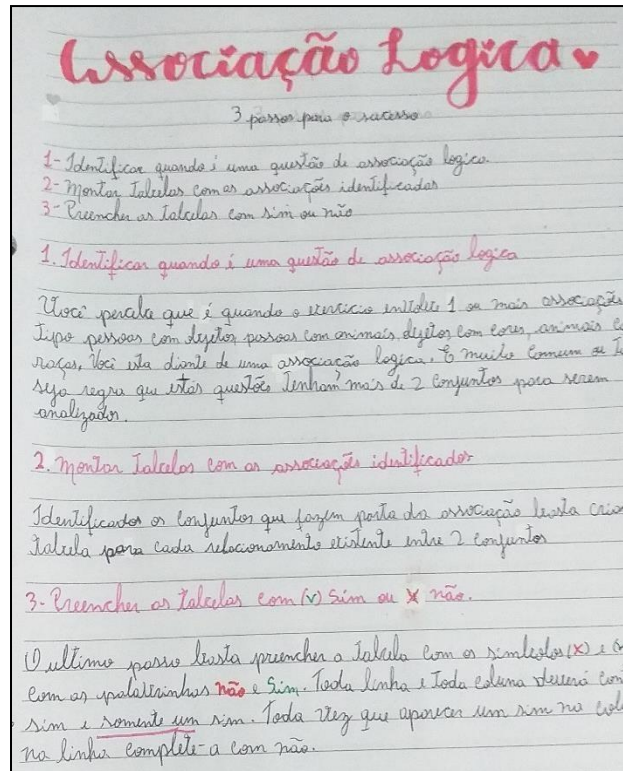 Associação Logica
3 passos para o sucesso
1- Identificar quando é uma questão de associação logica.
2- Montar Tabelas com as associações identificadas
3- Preencher as Tabelas com sim ou não
1. Identificar quando é uma questão de associação logica
Você percebe que é quando o exercicio 1 ou mais associações
Tipo pessoas com objetos, pessoas com animais, objetos com cores, animais
raças, Você esta diante de uma associação logica. É muito commum ou
seja regra que estas questões Tenham mais de 2 conjuntos para serem
analizados.
2. Montar Tabelas com as associações identificadas
Identificados os conjuntos que fazem parte da associação basta
Tabela para cada relacionamento existente entre 2 conjuntos
3- Preencher as Tabelas com (v) Sim ou X não.
O ultimo passo basta preencher a Tabela com os simbolos (X) e
com as palavrinhas não e Sim. Toda linha e Toda coluna deverá
sim e somente um sim. Toda vez que aparecer um sim na
na linha complete-a com não.